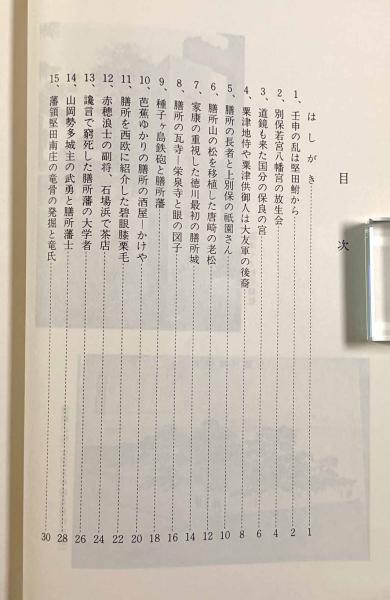 目次
はしがき 1
1、壬申の乱は堅田鮒から 2
2、別保若宮八幡宮の放生会 4
3、道鏡も来た国分の保良の宮 6
4、粟津地侍や粟津供御人は大友軍の後裔 8
5、膳所の長者と上別保の祇園さん 10
6、膳所山の松を移植した唐崎の老松 12
7、家康の重視した徳川最初の膳所城 14
8、膳所の瓦寺―栄泉寺と眼の図子 16
9、種子ヶ島鉄砲と膳所藩 18
10、芭蕉ゆかりの膳所の酒屋―かけや 20
11、膳所を西欧に紹介した碧眼膝栗毛 22
12、赤穂浪士の副将、石場浜で茶店 24
13、讒言で窮死した膳所藩の大学者 26
14、山岡勢多城主の武勇と膳所藩士 28
15、藩領堅田南庄の竜骨の発掘と竜氏 30